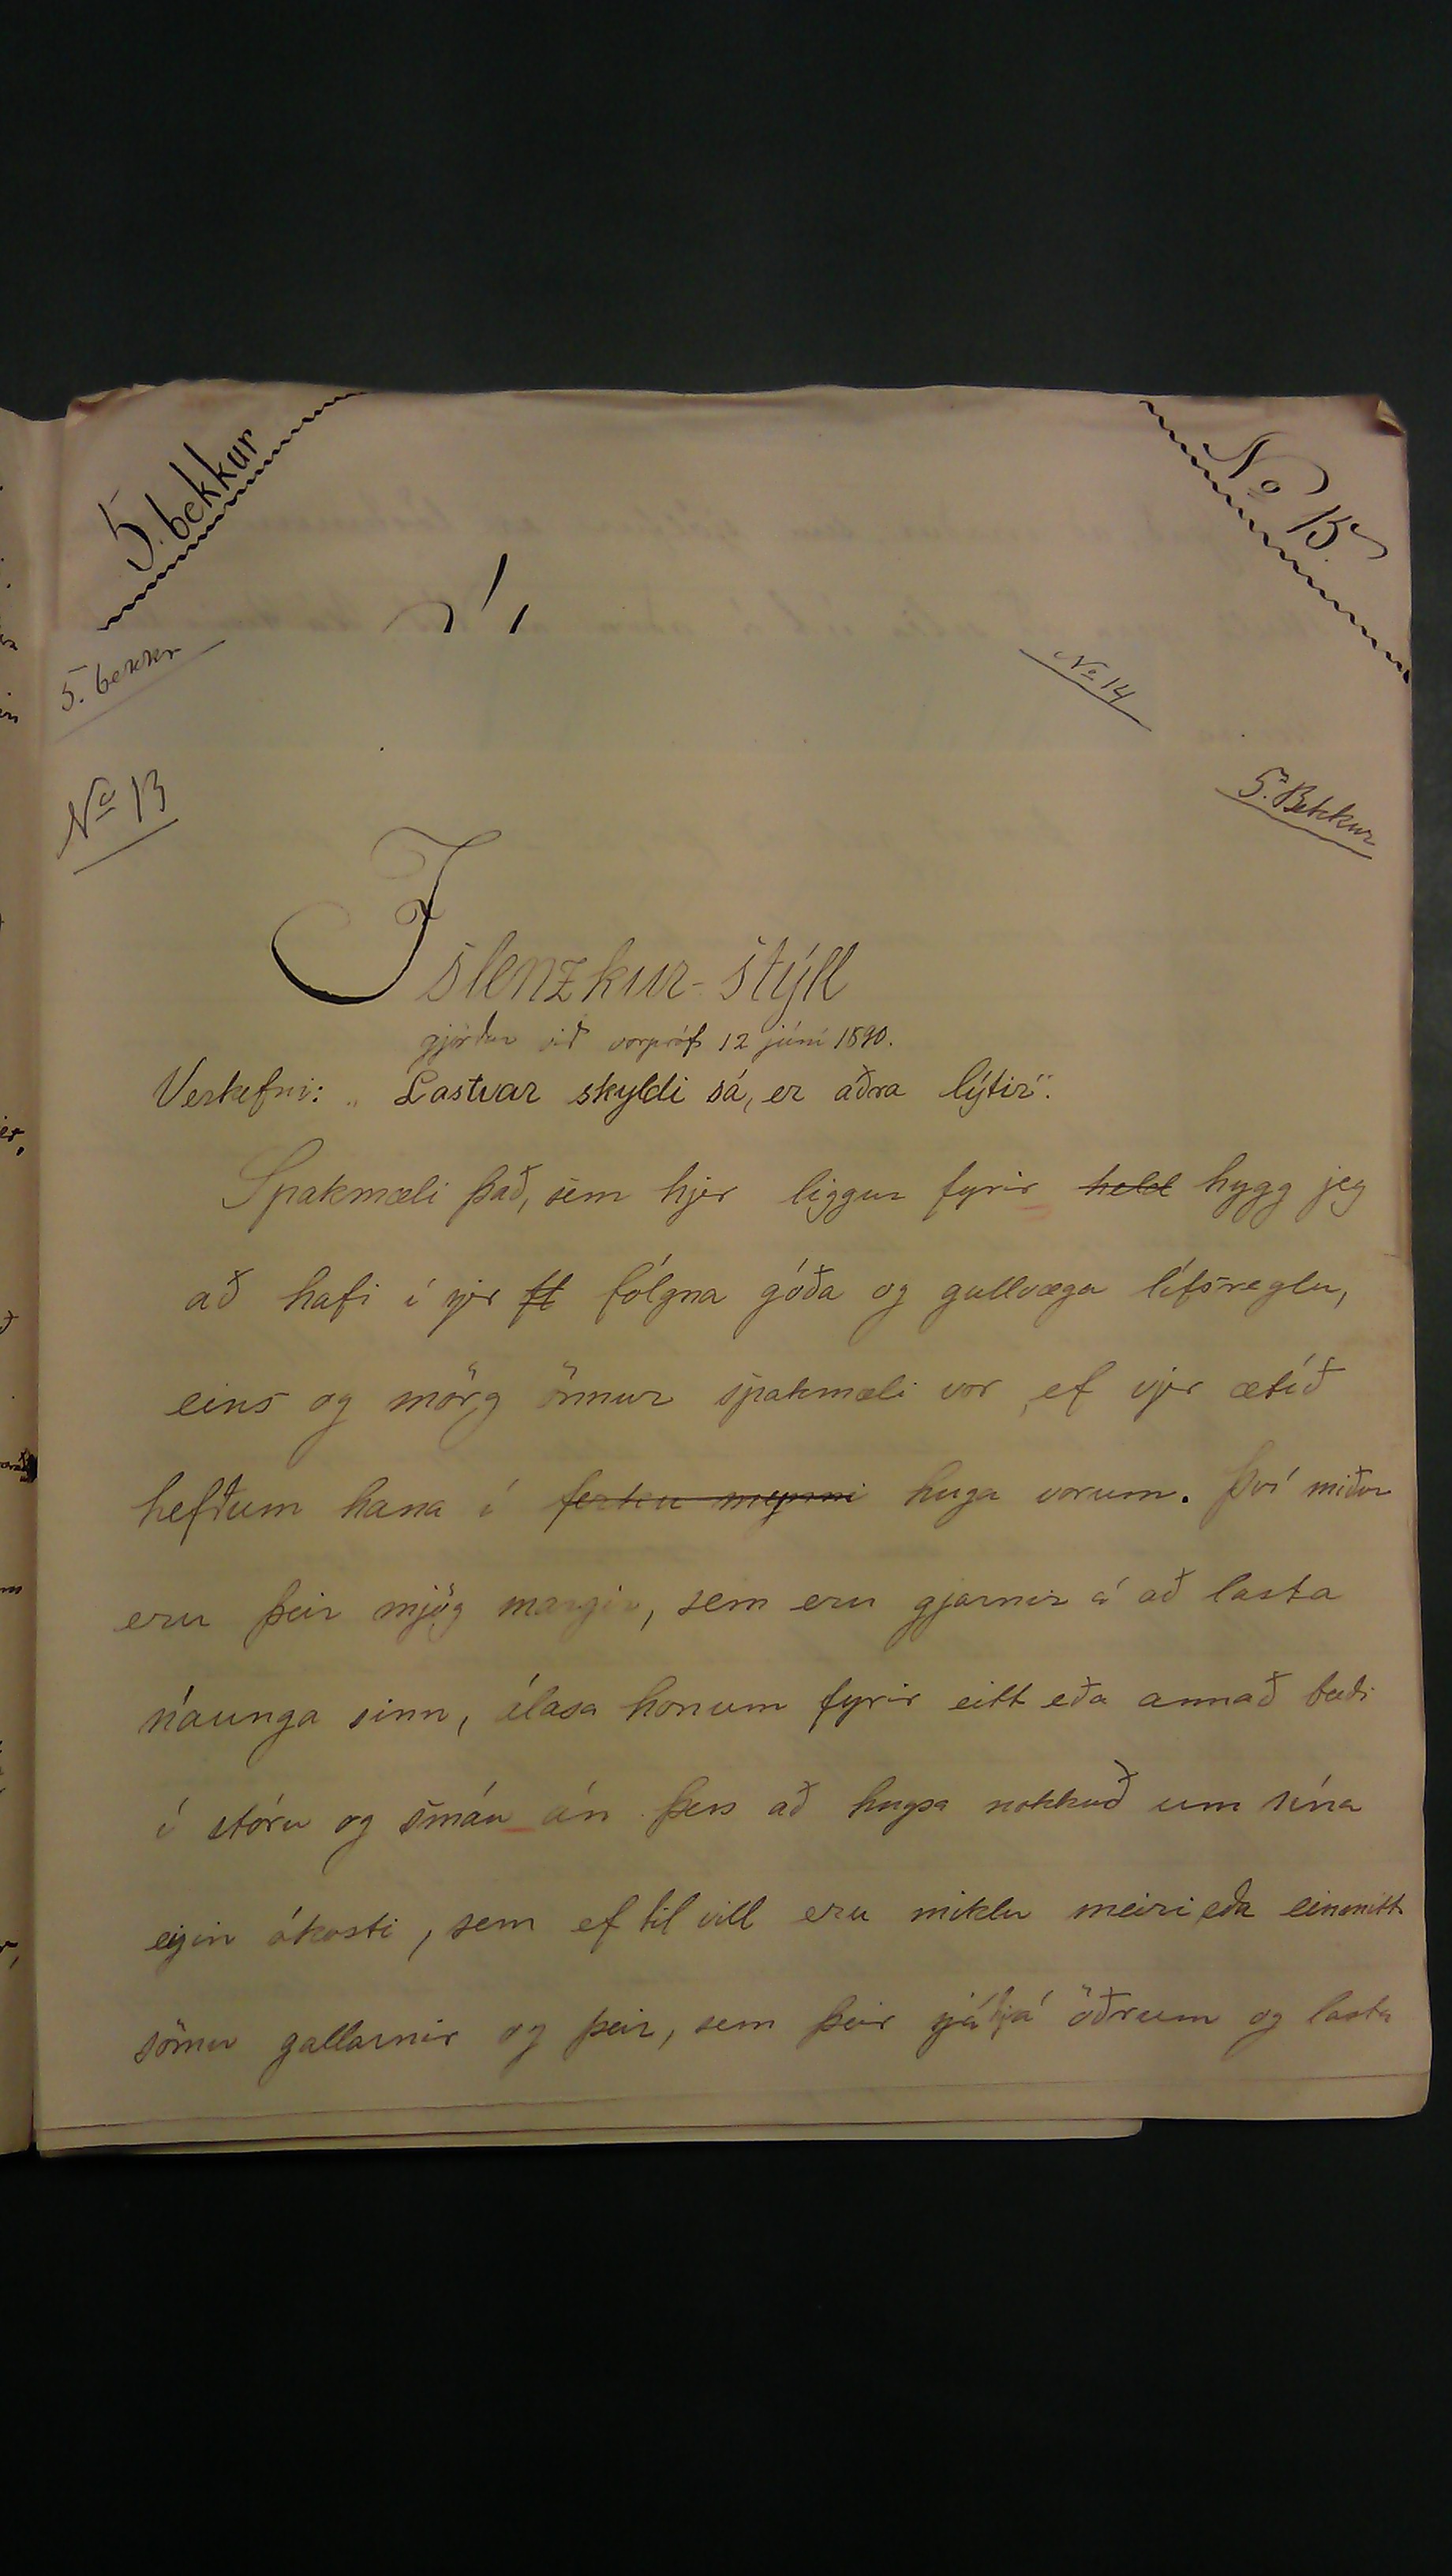 5. bekkur
No 13
5. bekkr
No 14
No 13
5. Bekkur
Íslenzkur-stýll
gjörður við vorpróf 12 júní 1890.
Verkefni: „Lastvar skyldi sá, er aðra lýtir“.
Spakmæli það, sem hjer liggur fyrir held hygg jeg
að hafi í sjer fólgna góða og gullvæga lífsreglu,
eins og mörg önnur spakmæli vor, ef vjer ætíð
hefðum hana í fersku minni huga vorum. Því miður
eru þeir mjög margir, sem eru gjarnir á að lasta
náunga sinn, álasa honum fyrir eitt eða annað bæði
í stóru og smáu án þess að hugsa nokkuð um sína
eigin ókosti, sem ef til vill eru miklu meiri eða einmitt
sömu gallarnir og þeir, sem þeir sjá hjá öðrum og lasta